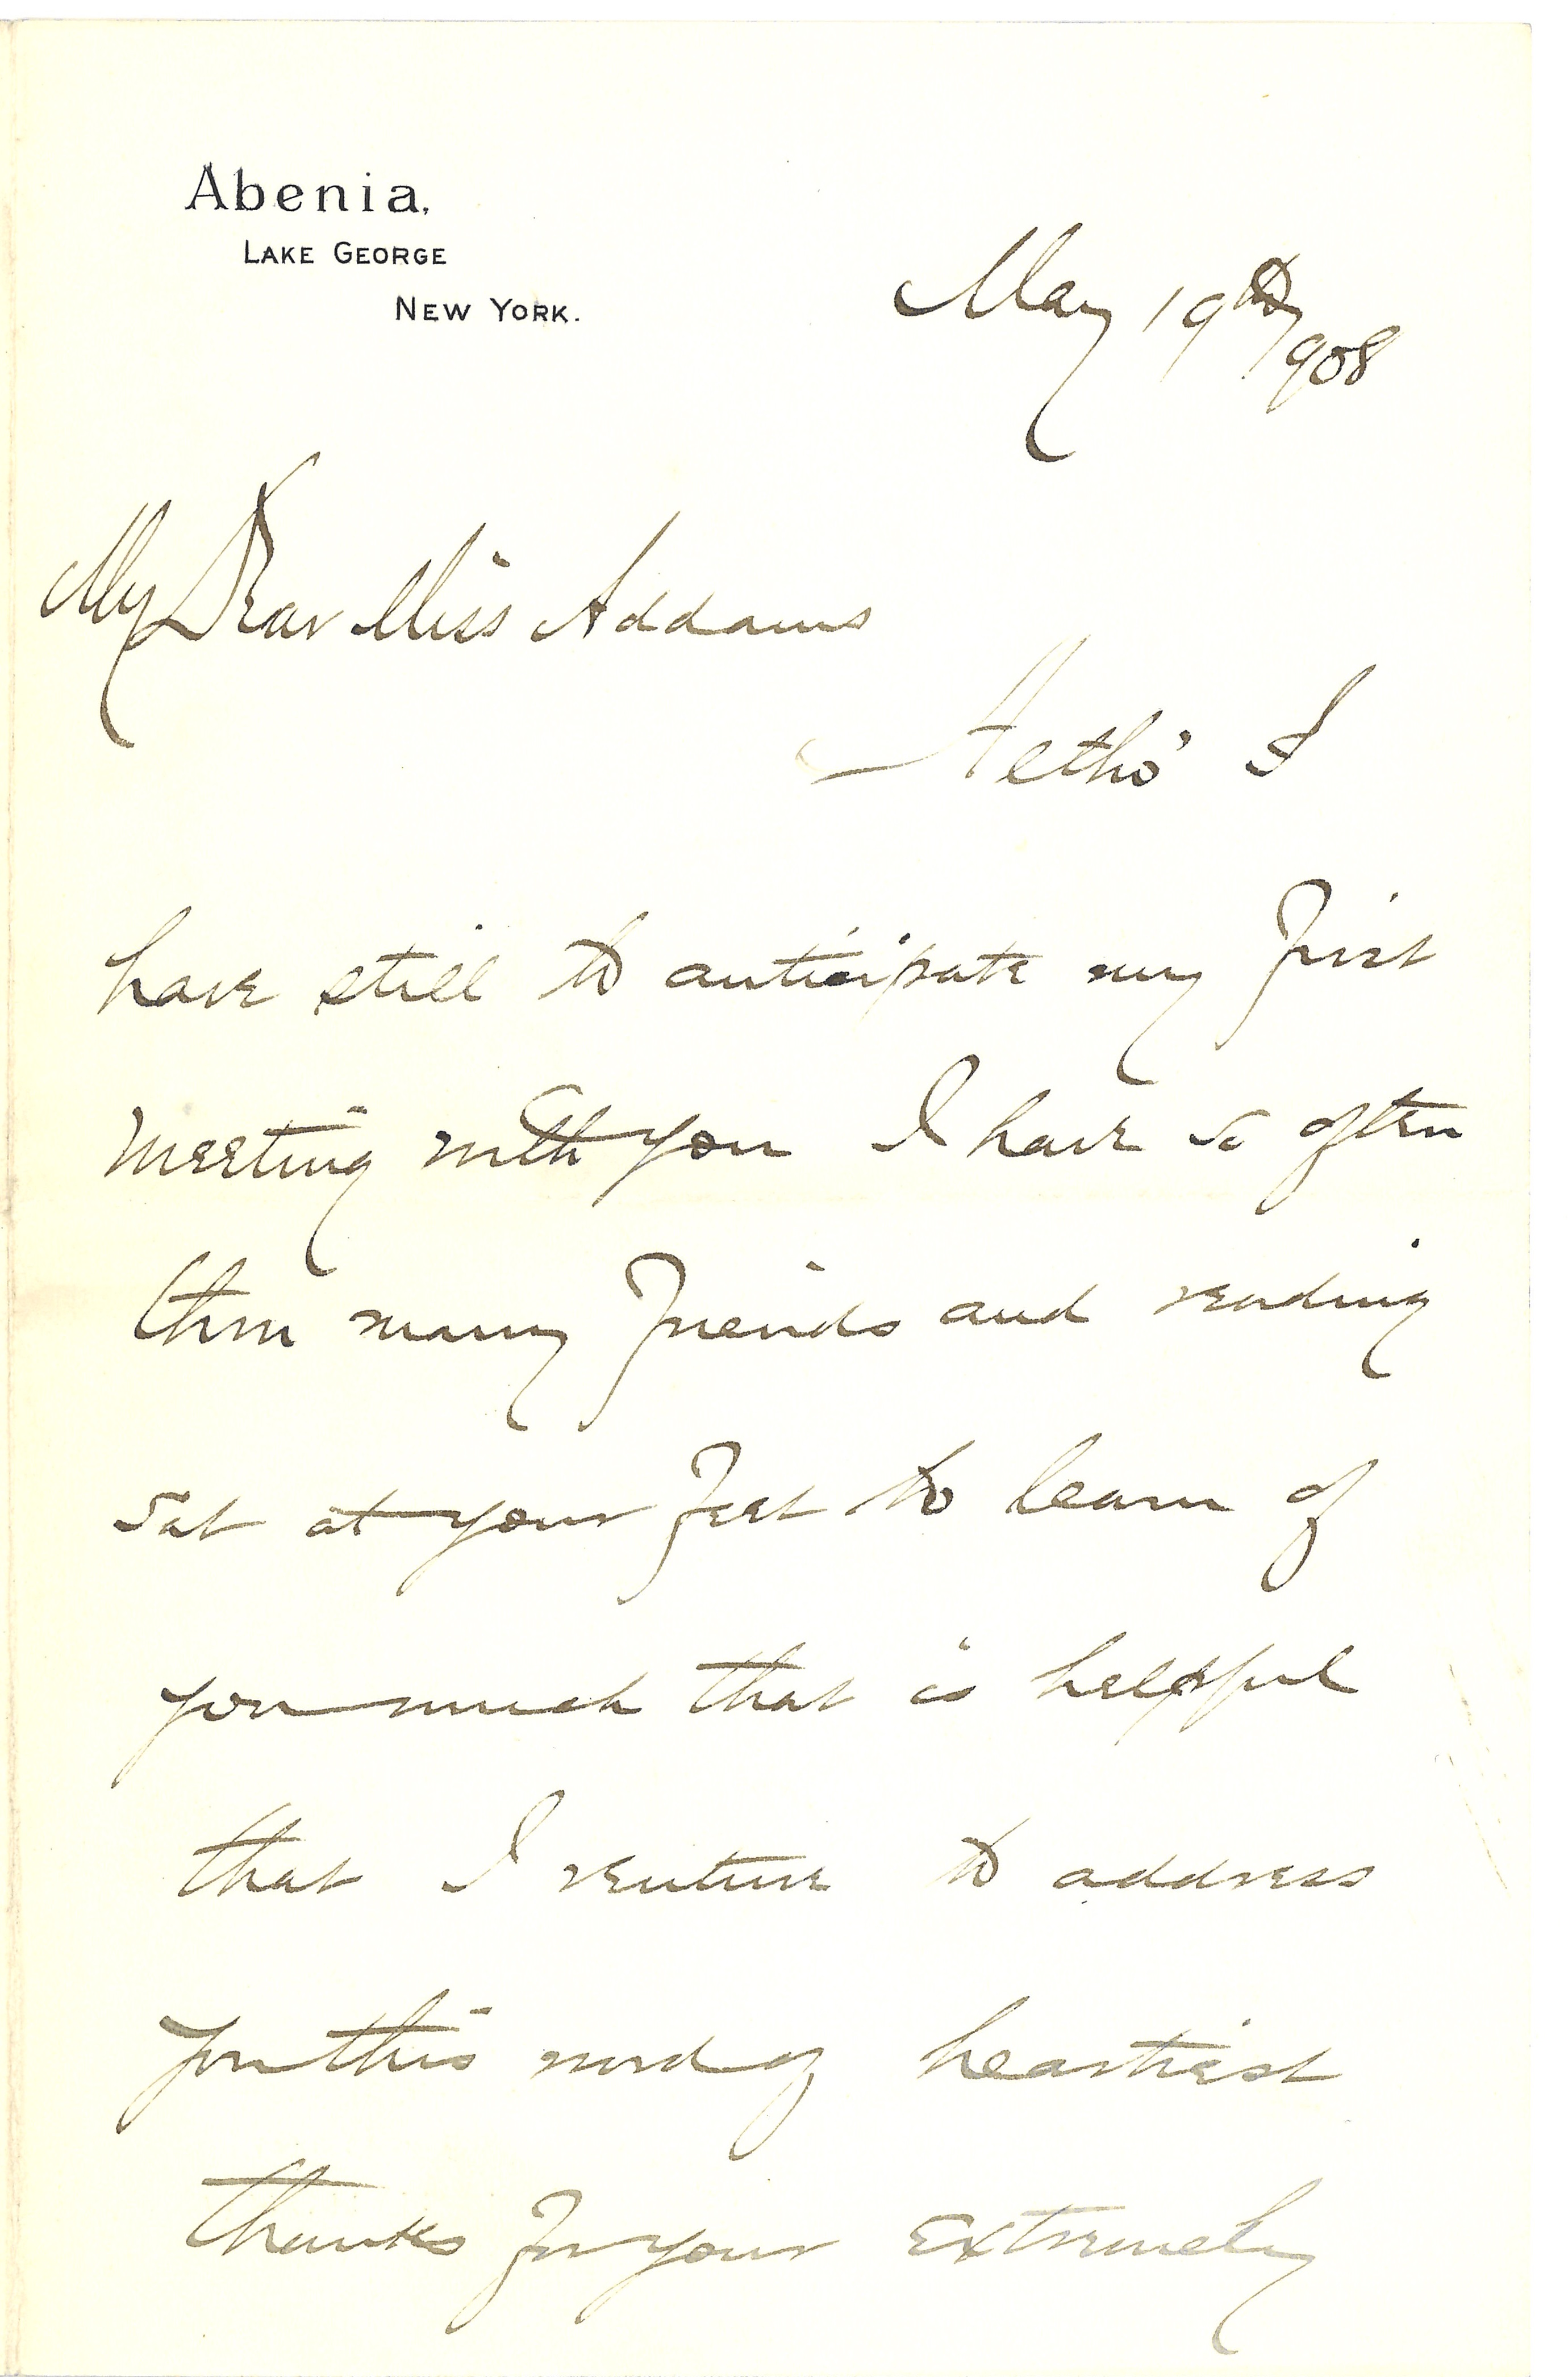 Abenia.
LAKE GEORGE
NEW YORK.
May 19th 1908
My Dear Miss Addams
Altho' I
have still to anticipate my first
meeting with you I have so often
thro many friends and reading
sat at your feet to learn of
you much that is helpful
that I venture to address
you this word of heartiest
thanks for your extremely